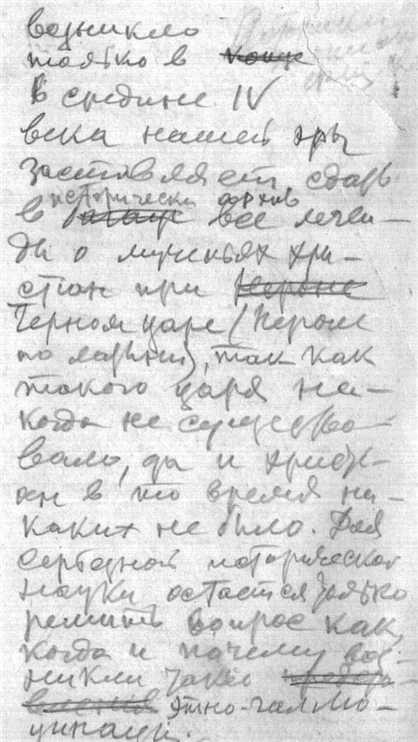 возникло
только в ~~конце~~
в средине IV
века нашей эры
заставляет сдать
исторически архив
в все леген-
ды о мученьях хри-
стіан при ~~Нероне~~
Черном царе (Нероне
по латыни), так как
такого царя ни-
когда не существо-
вало, да и христи-
ан в то время ни-
каких не было. Для
серьезной исторической
науки остается только
решить вопрос как,
когда и почему воз-
никли такие
этно-галлю-
цинации.